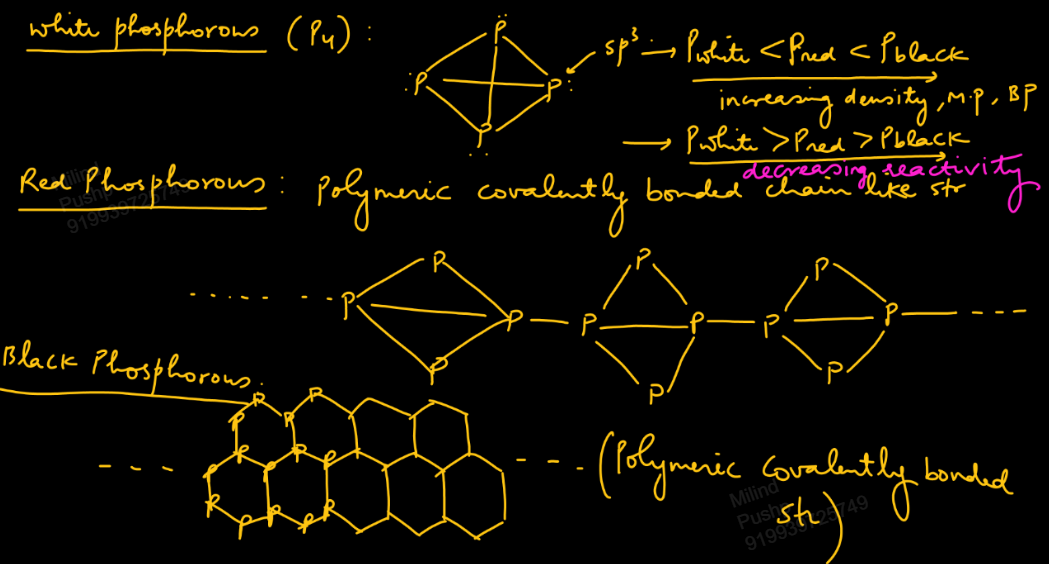 white phosphorous (P4) :
P
:P
P:
P
sp³ → Pwhite < Pred < Pblack
increasing density, M.P, BP
→ Pwhite > Pred > Pblack
decreasing reactivity
Red Phosphorous : Polymeric covalently bonded chain like str
P P P
P P P P P P
P P P
Black Phosphorous
P P
P P
P P P P P
P P
P P P
(Polymeric covalently bonded
str)
Milind
Pushp
Milind
Pushp
919939725749